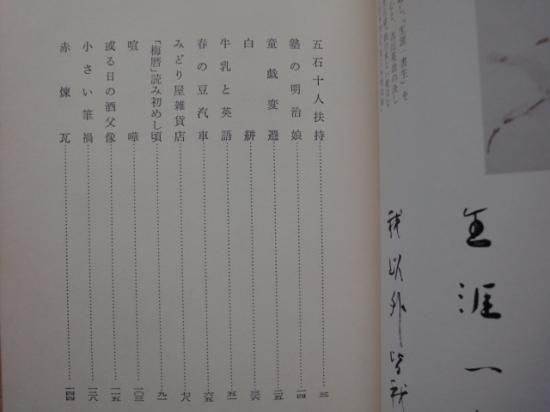 生涯一
我以外皆
五石十人扶持 三
塾の明治娘 一四
童戯変遷 二五
白絣 三六
牛乳と英語 五一
春の豆汽車 六五
みどり屋雑貨店 七八
「梅暦」読み初めし頃 九一
喧嘩 一〇三
或る日の酒父像 一一五
小さい筆禍 一二八
赤煉瓦 一四四